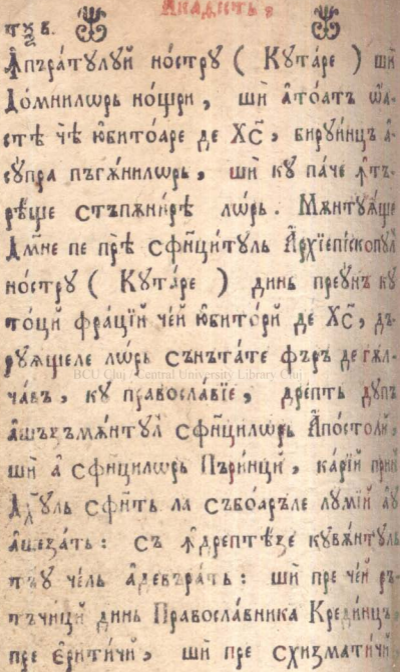 Акаѳистъ
Ꙟпъратулуй нострꙋ ( Кꙋтаре ) ши
Домнилѡрь нощри, ши а̂тоатъ ѡа-
сте чѣ юбитоаре де Хс҃, бирꙋинцъ а-
сꙋпра пъгѫнилѡрь, ши кꙋ паче ꙟтъ-
рѣще стъпѫнирѣ лѡрь. Мѫнтꙋꙗще
Дм҃не пе прѣ сфинцитꙋль Архїепіскопꙋл
нострꙋ ( Кꙋтаре ) динь преꙋнъ кꙋ
тоци фрацїй чей юбиторй де Хс҃, дъ-
рꙋꙗщеле лѡрь сънътате фъръ де гѫл-
BCU Cluj / Central University Library Cluj
чавъ, кꙋ православїе, дрепть дꙋпъ
ашъзъмѫнтꙋл сфинцилѡрь Апостоли,
ши а сфинцилѡрь Пъринци, карїй прин
Дх҃ꙋль сфѫнть ла събоаръле лꙋмїй аꙋ
ашезать : съ ꙟдрептѣзе кꙋвѫнтꙋль
тъꙋ чель адевърать : ши пре чей ръ-
тъчици динь Православника Крединцъ,
пре Еритичи, ши пре схизматичи,